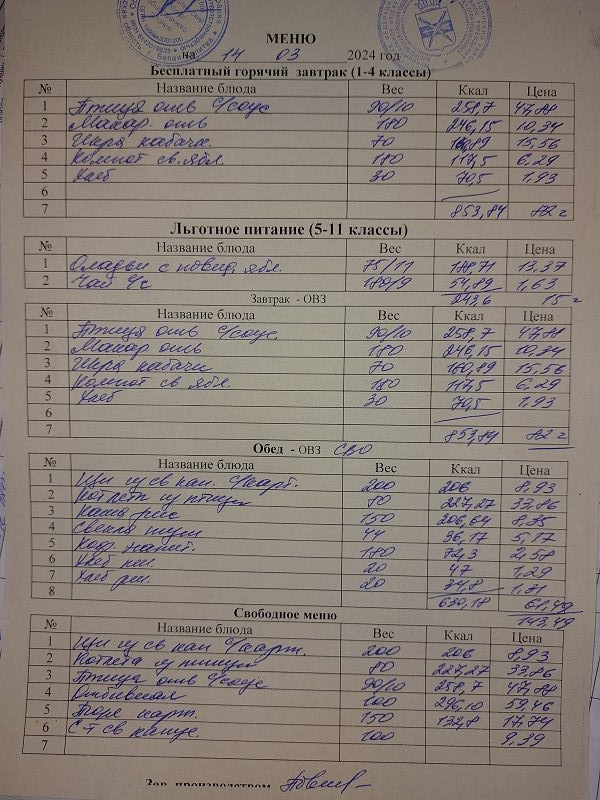 МЕНЮ
на 14 03 2024 год
Бесплатный горячий завтрак (1-4 классы)
№ Название блюда Вес Ккал Цена
1 Птица отв с/соус 90/10 258,7 47,88
2 Макар. отв 180 246,15 10,34
3 Икра кабачк. 70 160,89 15,56
4 Компот св. ябл. 180 117,5 6,29
5 Хлеб 30 70,5 1,93
6
7 853,84 82 =
Льготное питание (5-11 классы)
№ Название блюда Вес Ккал Цена
1 Оладьи с повид. ябл. 75/11 188,71 13,37
2 Чай с/с 180/9 54,89 1,63
243,6 15 =
Завтрак - ОВЗ
№ Название блюда Вес Ккал Цена
1 Птица отв с/соус 90/10 258,7 47,88
2 Макар отв 180 246,15 10,34
3 Икра кабачк 70 160,89 15,56
4 Компот св ябл 180 117,5 6,29
5 Хлеб 30 70,5 1,93
6
7 853,84 82 =
Обед - ОВЗ СВО
№ Название блюда Вес Ккал Цена
1 Щи из св кап. с/карт. 200 206 8,93
2 Котлета из птицы 80 227,27 33,86
3 Каша рис 150 206,64 8,35
4 Свекла туш 44 36,17 5,17
5 Коф. напит. 180 72,3 2,58
6 Хлеб 20 47 1,29
7 Хлеб рж. 20 34,8 1,31
8 630,18 61,49
143,49
Свободное меню
№ Название блюда Вес Ккал Цена
1 Щи из св кап с/карт. 200 206 8,93
2 Котлета из птицы 80 227,27 33,86
3 Птица отв с/соус 90/10 258,7 47,88
4 Отбивная 100 296,10 59,46
5 Пюре карт. 150 132,8 17,74
6 С-т св капус. 100 9,39
7
Зав. производством